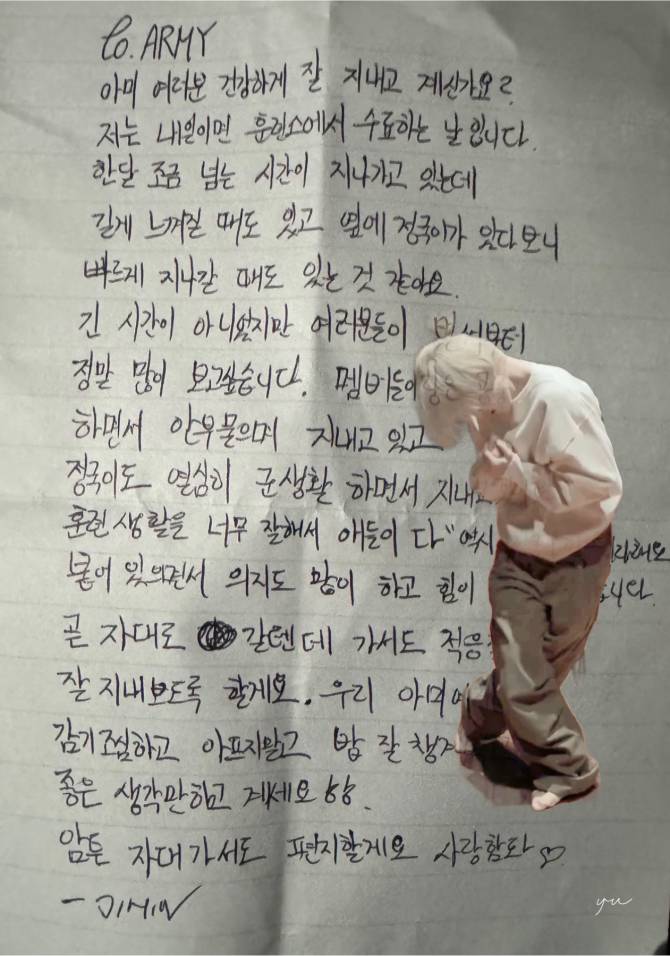 To. ARMY
아미 여러분 건강하게 잘 지내고 계신가요?
저는 내일이면 훈련소에서 수료하는 날 입니다.
한달 조금 넘는 시간이 지나가고 있는데
길게 느껴질 때도 있고 옆에 정국이가 있다보니
빠르게 지나갈 때도 있는 것 같아요.
긴 시간이 아니였지만 여러분들이
정말 많이 보고싶습니다. 멤버들이랑은
하면서 안부물으며 지내고 있고
정국이도 열심히 군생활 하면서 지내고
훈련 생활을 너무 잘해서 애들이 다 "역시
붙어 있으면서 의지도 많이 하고 힘이
곧 자대로 갈텐데 가서도 적응
잘 지내보도록 할게요. 우리 아미
감기조심하고 아프지말고 밥 잘 챙겨
좋은 생각만하고 계세요 ㅎㅎ.
암튼 자대가서도 편지할게요 사랑함돠♡
- JIMIN
yu